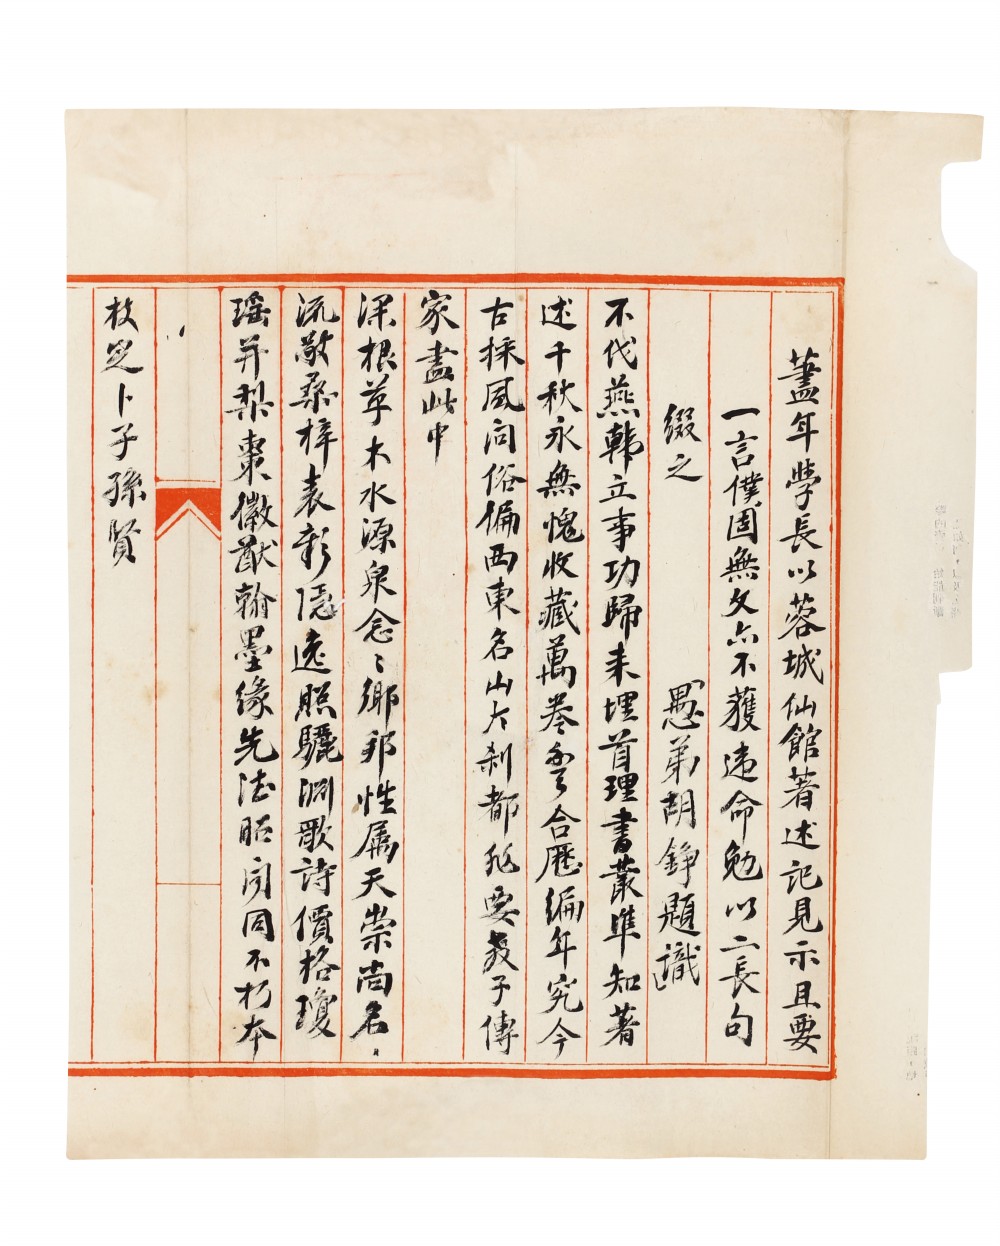 藎年學長以蓉城仙館著述記見示且要
一言僕固無文亦不獲違命勉以二長句
綴之 愚弟胡錚題識
不伐燕韓立事功歸来埋首理書叢準知著
述千秋永無愧收藏萬卷豐合歷編年究今
古採風问俗徧西東名山大刹都非要教子傳
家盡此中
深根草木水源泉念〻鄉邦性屬天崇尚名
流敬桑梓表彰隱逸照驪淵歌詩價格瓊
瑶并梨棗徽猷翰墨緣先德昭闻同不朽本
枝定卜子孫賢